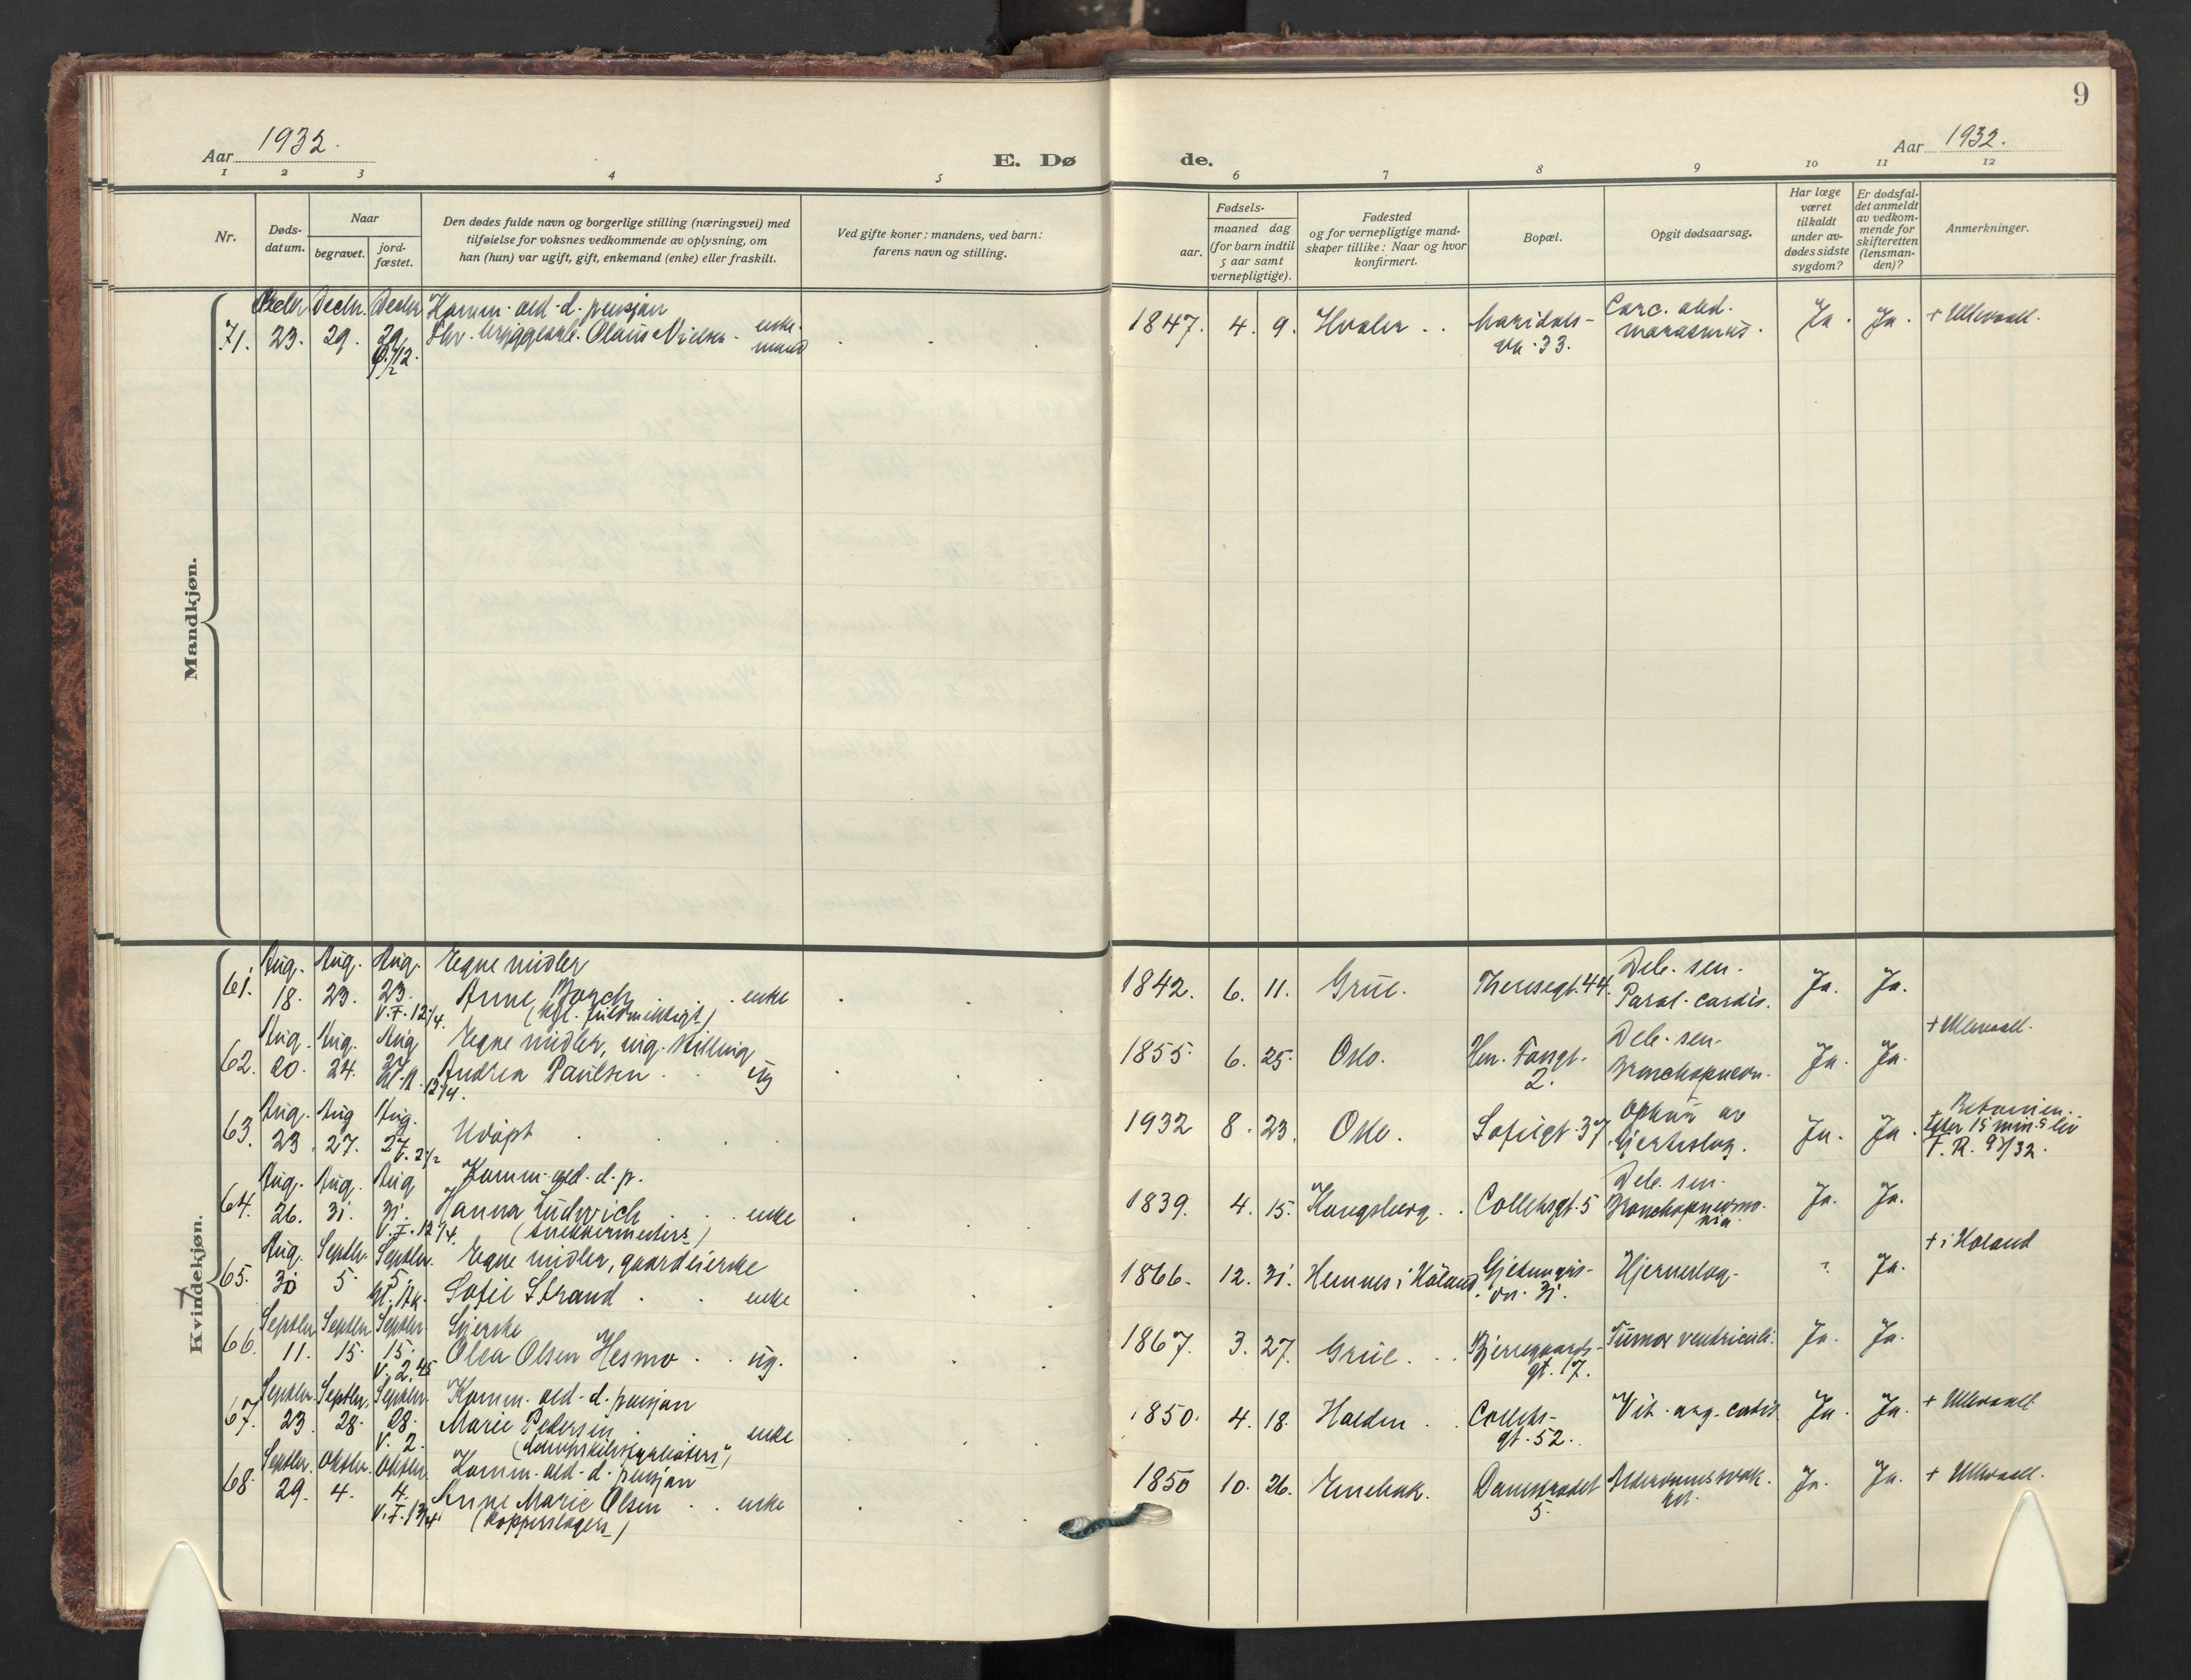 9
Aar 1932.
E. Dø
de.
Aar 1932.
1 2 3 4 5 6 7 8 9 10 11 12
Nr.
Døds-
datum.
Naar
begravet.
jord-
fæstet.
Den dødes fulde navn og borgerlige stilling (næringsvei) med
tilføielse for voksnes vedkommende av oplysning, om
han (hun) var ugift, gift, enkemand (enke) eller fraskilt.
Ved gifte koner: mandens, ved barn:
farens navn og stilling.
Fødsels-
aar.
maaned dag
(for barn indtil
5 aar samt
vernepligtige).
Fødested
og for vernepligtige mand-
skaper tillike: Naar og hvor
konfirmert.
Bopæl.
Opgit dødsaarsag.
Har læge
været
tilkaldt
under av-
dødes sidste
sygdom?
Er dødsfal-
det anmeldt
av vedkom-
mende for
skifteretten
(lensman-
den)?
Anmerkninger.
Mandkjøn.
Decbr. Decbr. Decbr. Komm. ald. d. pensjon
71. 23. 29. 29. Fhv. bryggearb. Olaus Nielsen enke-
mand
1847. 4. 9. Hvaler Maridals-
vn. 33.
Carc. abd.
marasmus.
Ja. Ja. + Ullevaal.
Kvindekjøn.
Aug. Aug. Aug. Egne midler
61. 18. 23. 23. Anne Borch enke
V. I. 12 1/4.
1842. 6. 11. Grue. Theresegt. 44.
Deb. sen.
Paral. cardis.
Ja. Ja.
Aug. Aug. Aug. Egne midler, ing. stilling
62. 20. 24. 24. Andrea Paulsen ug
1855. 6. 25. Oslo. Hm. Foss gt.
2.
Deb. sen.
Bronchopneum.
Ja. Ja. + Ullevaal.
Aug. Aug. Aug.
63. 23. 27. 27. Udøpt
V. 2 1/2
1932 8. 23. Oslo. Sofiegt. 37.
Ophør av
hjerteslag.
Ja. Ja.
efter 15 min.s liv
F. R. 97/32.
Aug. Aug. Aug. Komm. ald. d. p.
64. 26. 31. 31. Hanna Ludwich enke
V. I. 12 1/4. (snekkermesters)
1839. 4. 15. Kongsberg. Colletsgt. 5
Deb. sen.
Bronchopneumo-
nia.
Ja. Ja.
Aug. Septbr. Septbr. Egne midler, gaardeierske
65. 30 5. 5. Sofie Strand enke
1866. 12. 31. Hemnes i Höland. Gjetemyrs-
vn. 31.
Hjerneslag. ? Ja. + i Höland
Septbr. Septbr. Septbr. Syerske
66. 11. 15. 15. Olea Olsen Hesmo ug.
V. 2.45
1867. 3. 27. Grue. Bjerregaards-
gt. 17.
Tumor ventriculi. Ja. Ja.
Septbr. Septbr. Septbr. Komm. ald. d. pensjon
67. 23 28. 28. Marie Pedersen enke
V. 2.
1850. 4. 18. Halden Collets-
gt. 52.
Vit. org. cordis Ja. Ja. + Ullevaal.
Septbr. Oktbr. Oktbr. Komm. ald. d. pensjon
68. 29. 4. 4. Anne Marie Olsen enke
V. I. 13/4 (kopperslagers)
1850 10. 26. Enebak. Damstrædet
5.
Alderdomssvak-
het.
Ja. Ja. + Ullevaal.